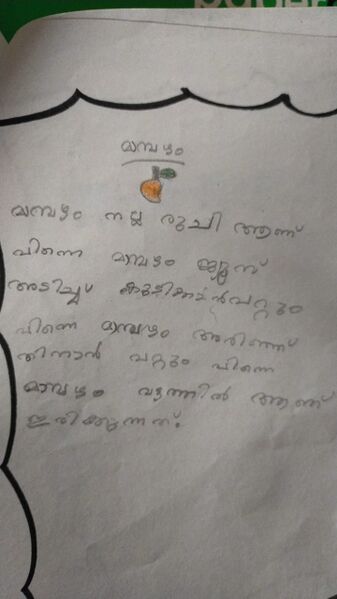 മാമ്പഴം
മാമ്പഴം നല്ല രുചി ആണ്
പിന്നെ മാമ്പഴം ജ്യൂസ്
അടിച്ച് കുടിക്കാൻപറ്റും
പിന്നെ മാമ്പഴം അരിഞ്ഞ്
തിന്നാൻ പറ്റും പിന്നെ
മാമ്പഴം വട്ടത്തിൽ ആണ്
ഇരിക്കുന്നത്.